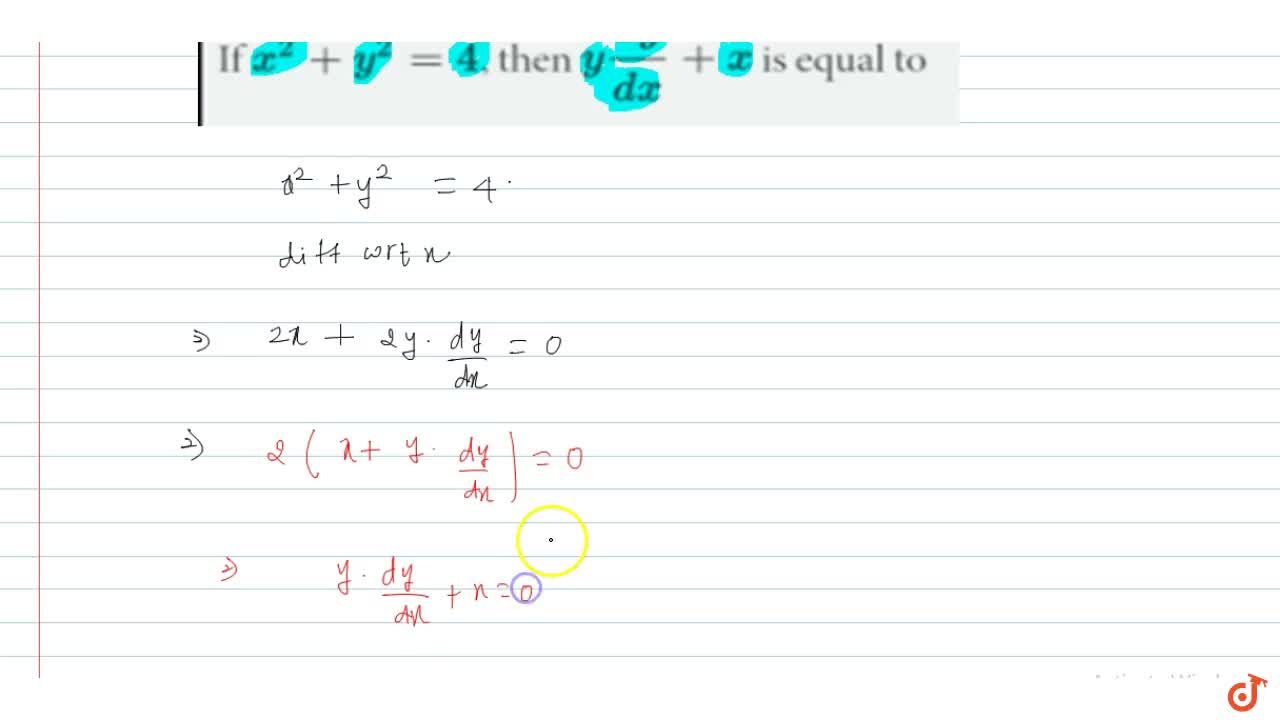 If x² + y² = 4, then y dy/dx + x is equal to
x² + y² = 4.
diff wrt x
⇒ 2x + 2y. dy/dx = 0
⇒ 2 ( x + y. dy/dx ) = 0
⇒ y. dy/dx + x = 0